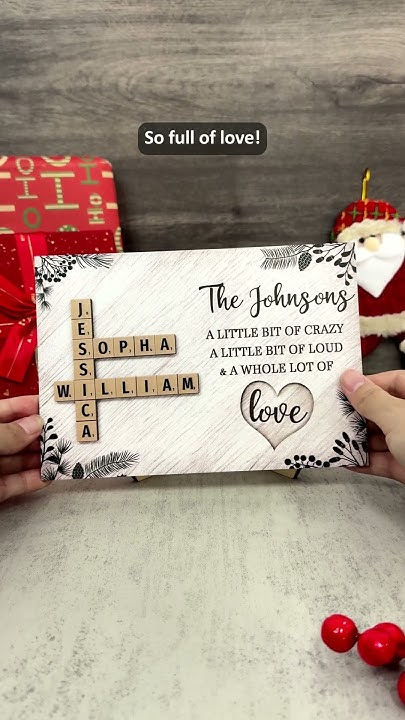 So full of love!
JESSICA
SOPHA
WILLIAM
The Johnsons
A LITTLE BIT OF CRAZY
A LITTLE BIT OF LOUD
& A WHOLE LOT OF
love